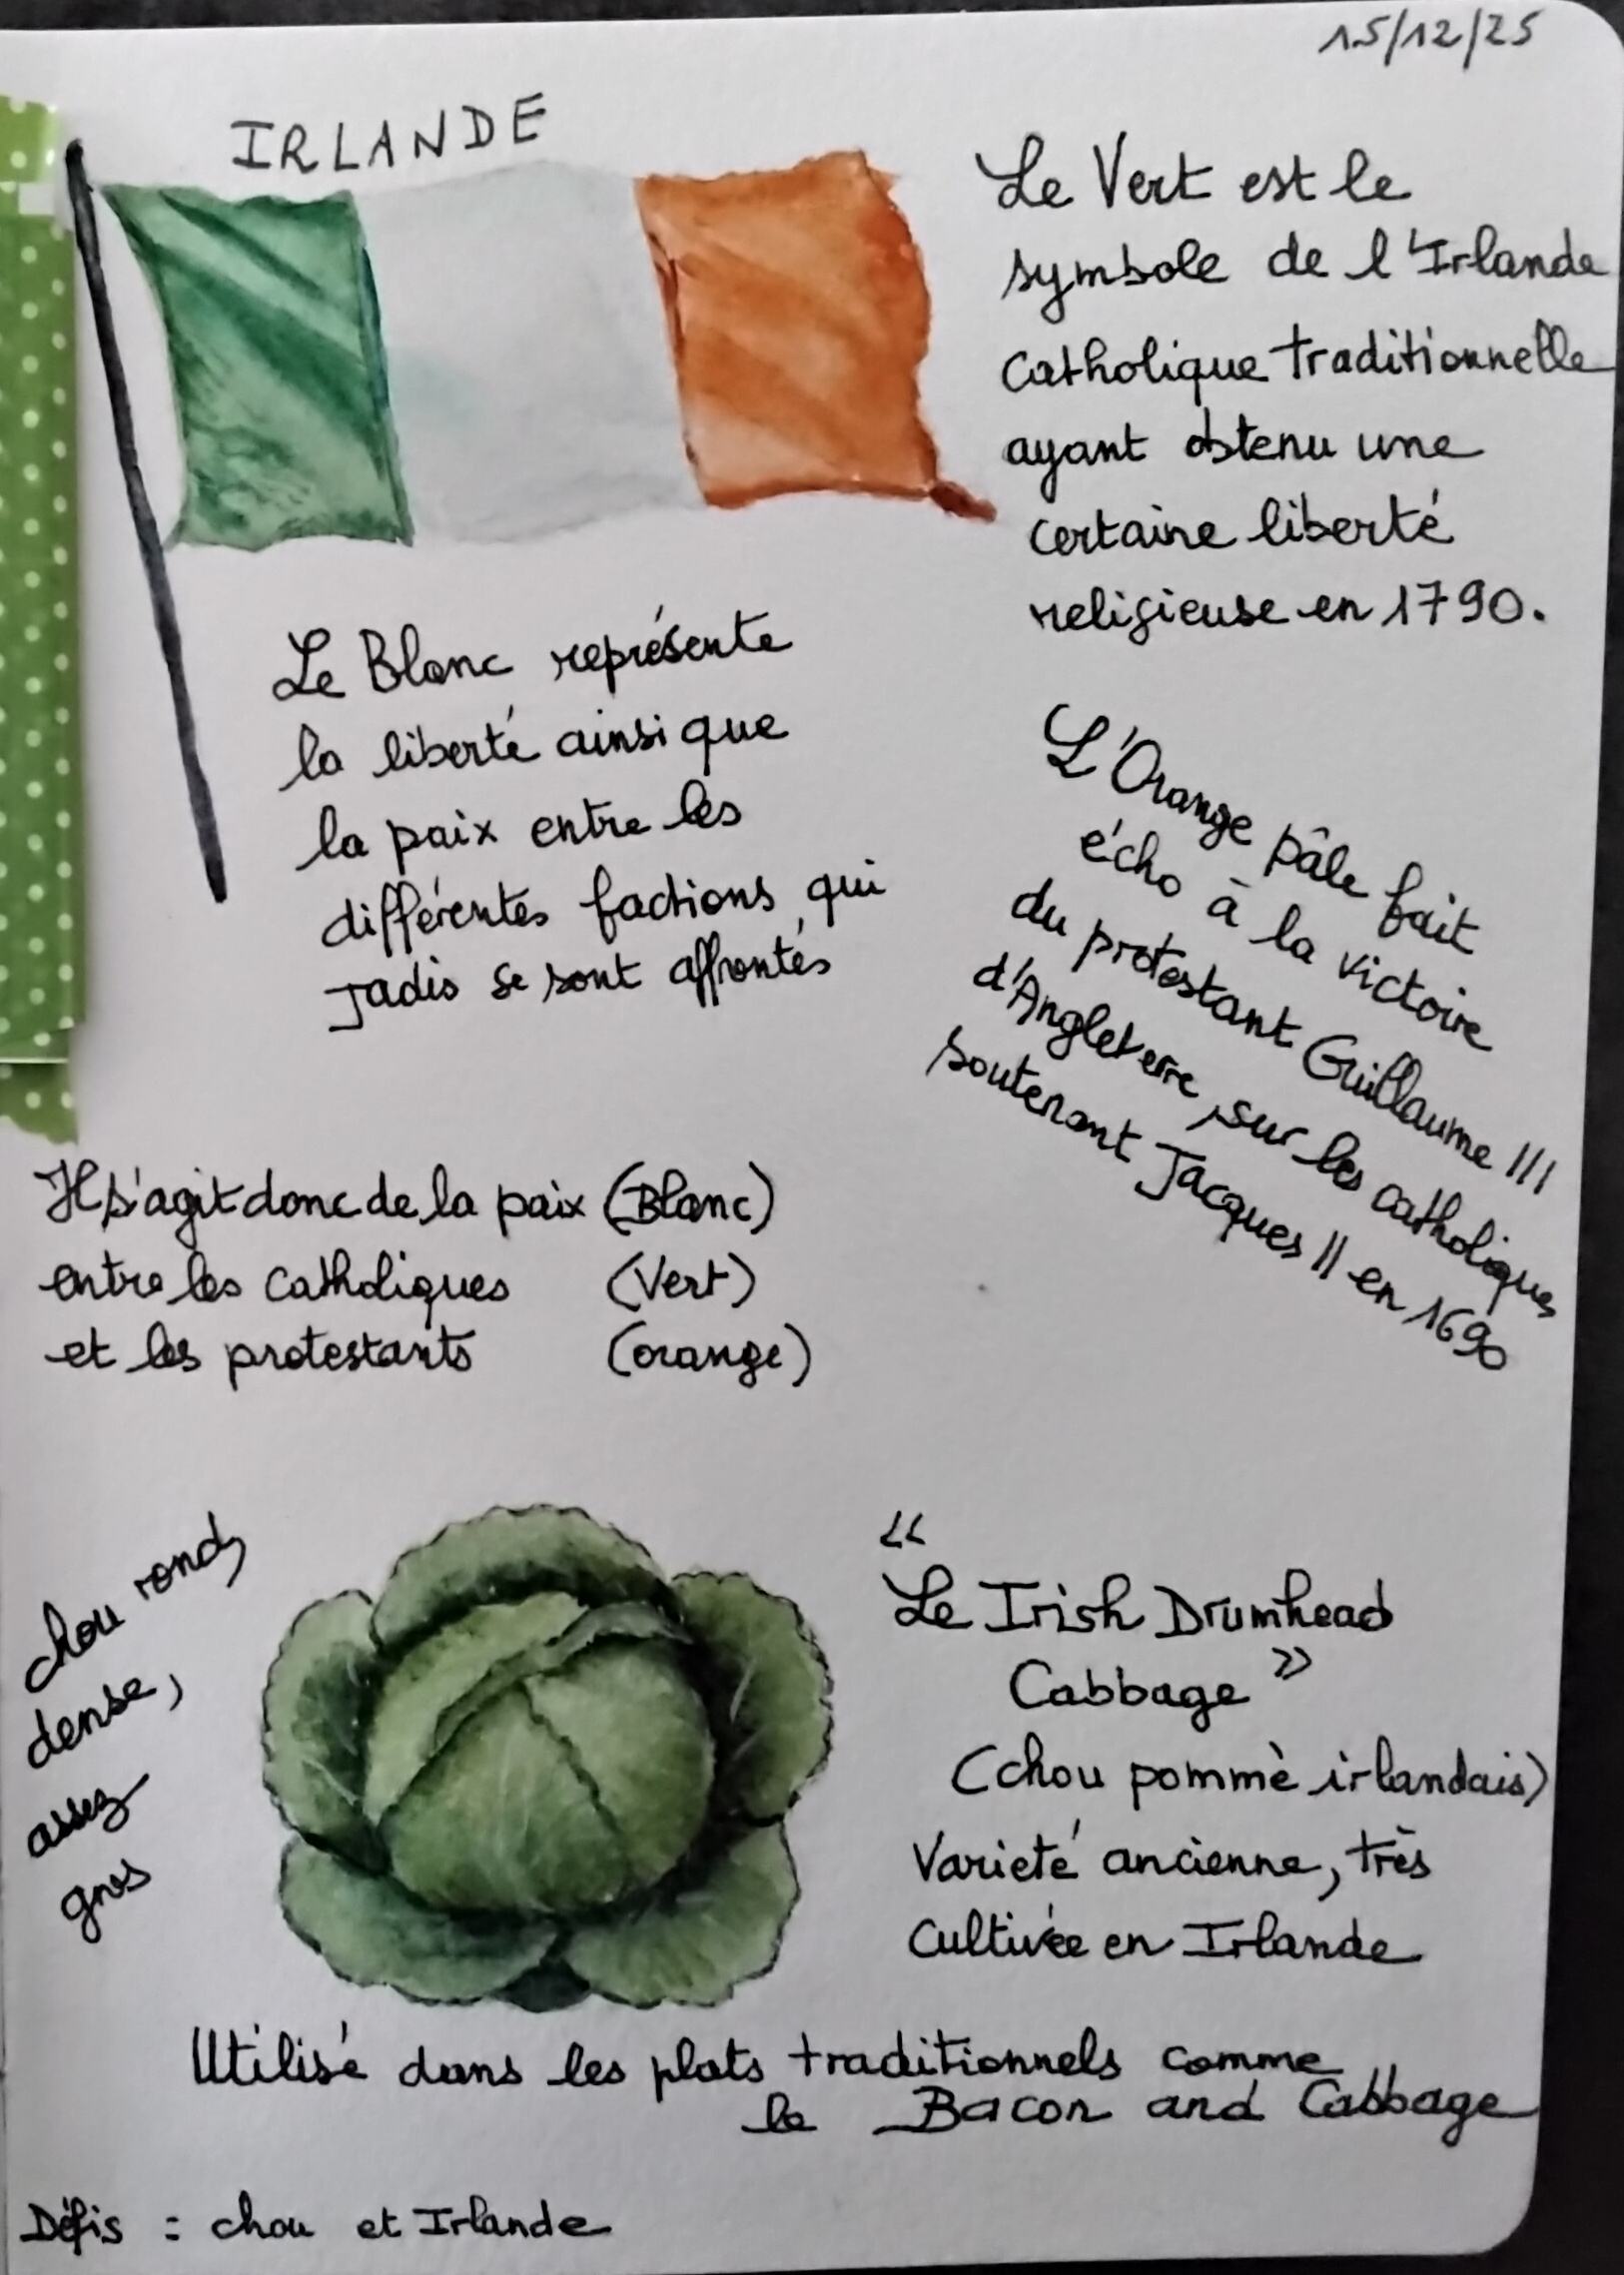 15/12/25
IRLANDE
Le Vert est le
symbole de l'Irlande
Catholique traditionnelle
ayant obtenu une
certaine liberté
religieuse en 1790.
Le Blanc représente
la liberté ainsi que
la paix entre les
différentes factions qui
jadis se sont affrontés
L'Orange pâle fait
écho à la victoire
du protestant Guillaume III
d'Angleterre, sur les catholiques
soutenant Jacques II en 1690
Il s'agit donc de la paix (Blanc)
entre les catholiques (Vert)
et les protestants (orange)
chou rond,
dense,
assez
gros
«
Le Irish Drumhead
Cabbage »
(chou pommè irlandais)
Varieté ancienne, très
cultivée en Irlande
Utilisé dans les plats traditionnels comme
le Bacon and Cabbage
Défis = chou et Irlande